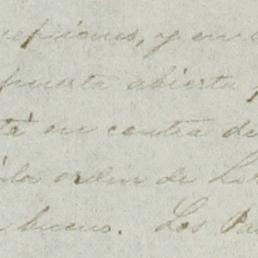 epciones, y en
puerta abierta
tá en contra de
la orden de
bueno. Los